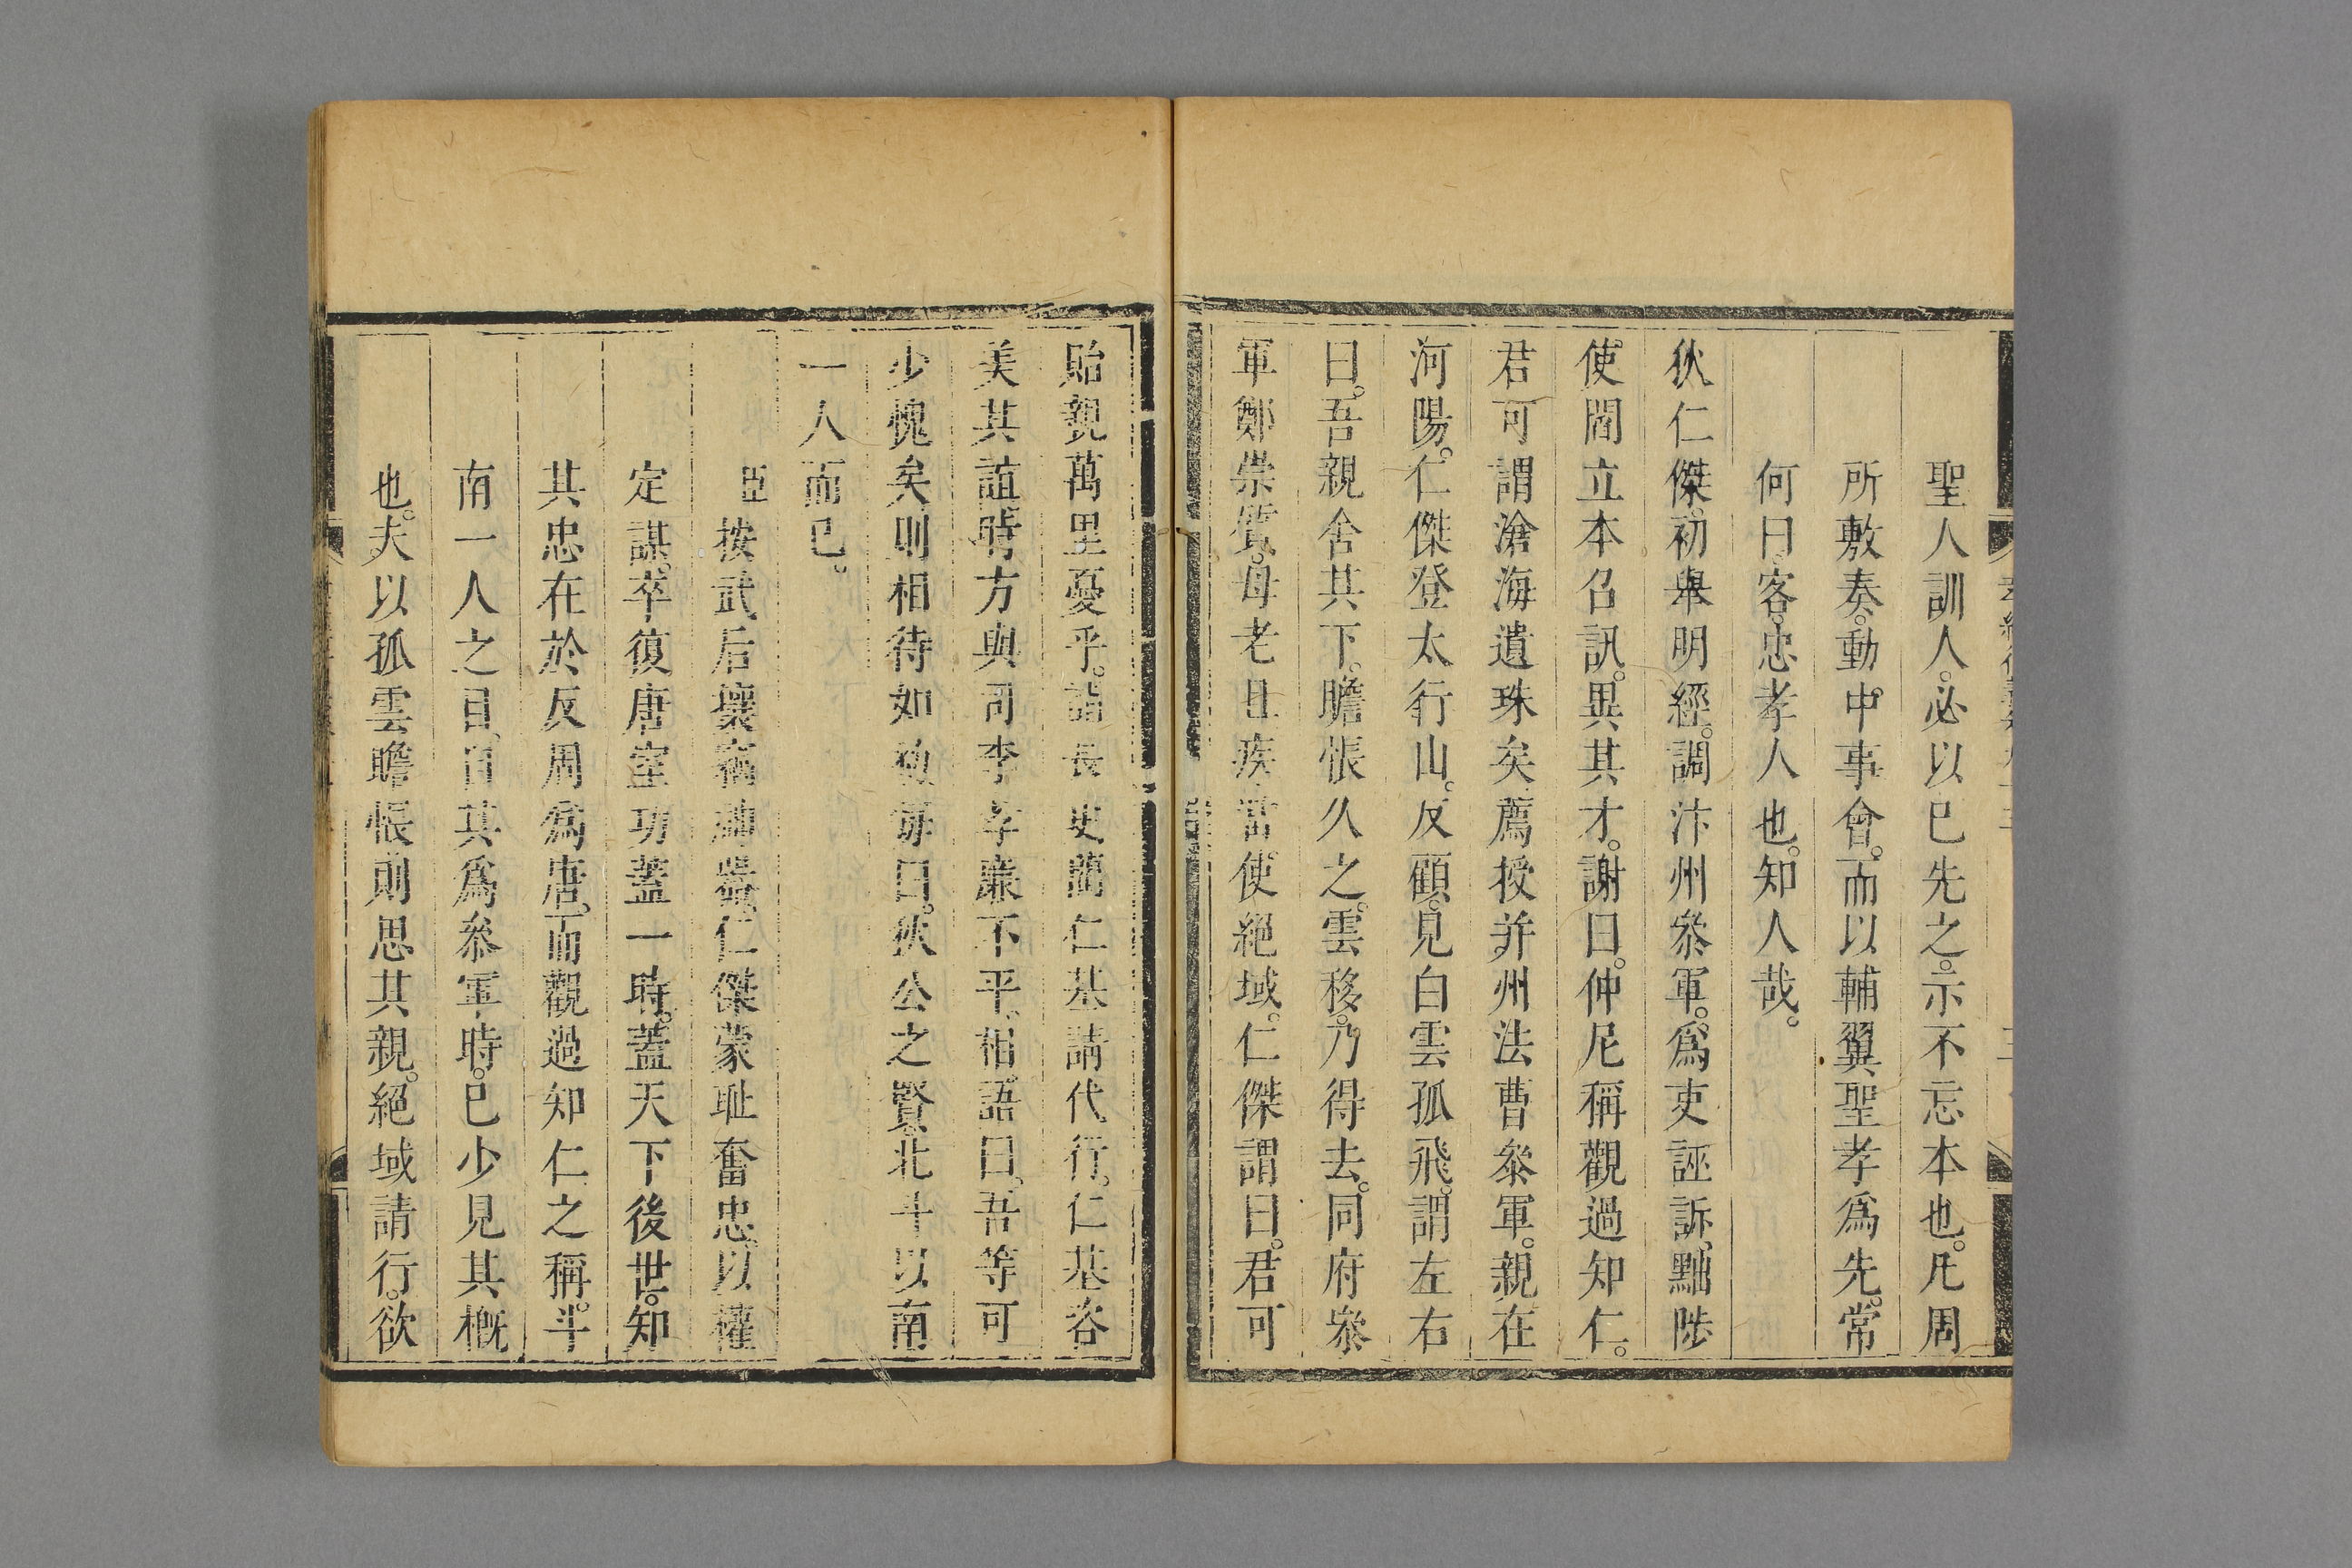 聖人訓人。必以已先之。示不忘本也。凡周
所敷奏。動中事會。而以輔翼聖孝爲先。常
何曰。客。忠孝人也。知人哉。
狄仁傑。初舉明經。調汴州叅軍。爲吏誣訴。黜陟
使。閻立本召訊。異其才。謝曰。仲尼稱觀過知仁。
君可謂滄海遺珠矣。薦授并州法曹叅軍。親在
河陽。仁傑登太行山。反顧。見白雲孤飛。謂左右
曰。吾親舍其下。瞻悵久之。雲移。乃得去。同府叅
軍鄭崇質。母老且疾。當使絕域。仁傑謂曰。君可
貽親萬里憂乎。詣長史藺仁基請代行。仁基咨
美其誼。時方與司李孝廉不平。相語曰。吾等可
少愧矣。則相待如初。每曰。狄公之賢。北斗以南
一人而已。
臣按武后壞竊神器。仁傑蒙耻奮忠。以權
定謀。卒復唐室。功蓋一時。蓋天下後世。知
其忠在於反周爲唐。而觀過知仁之稱。斗
南一人之目。自其爲叅軍時。已少見其槪
也。夫以孤雲瞻悵。則思其親。絕域請行。欲